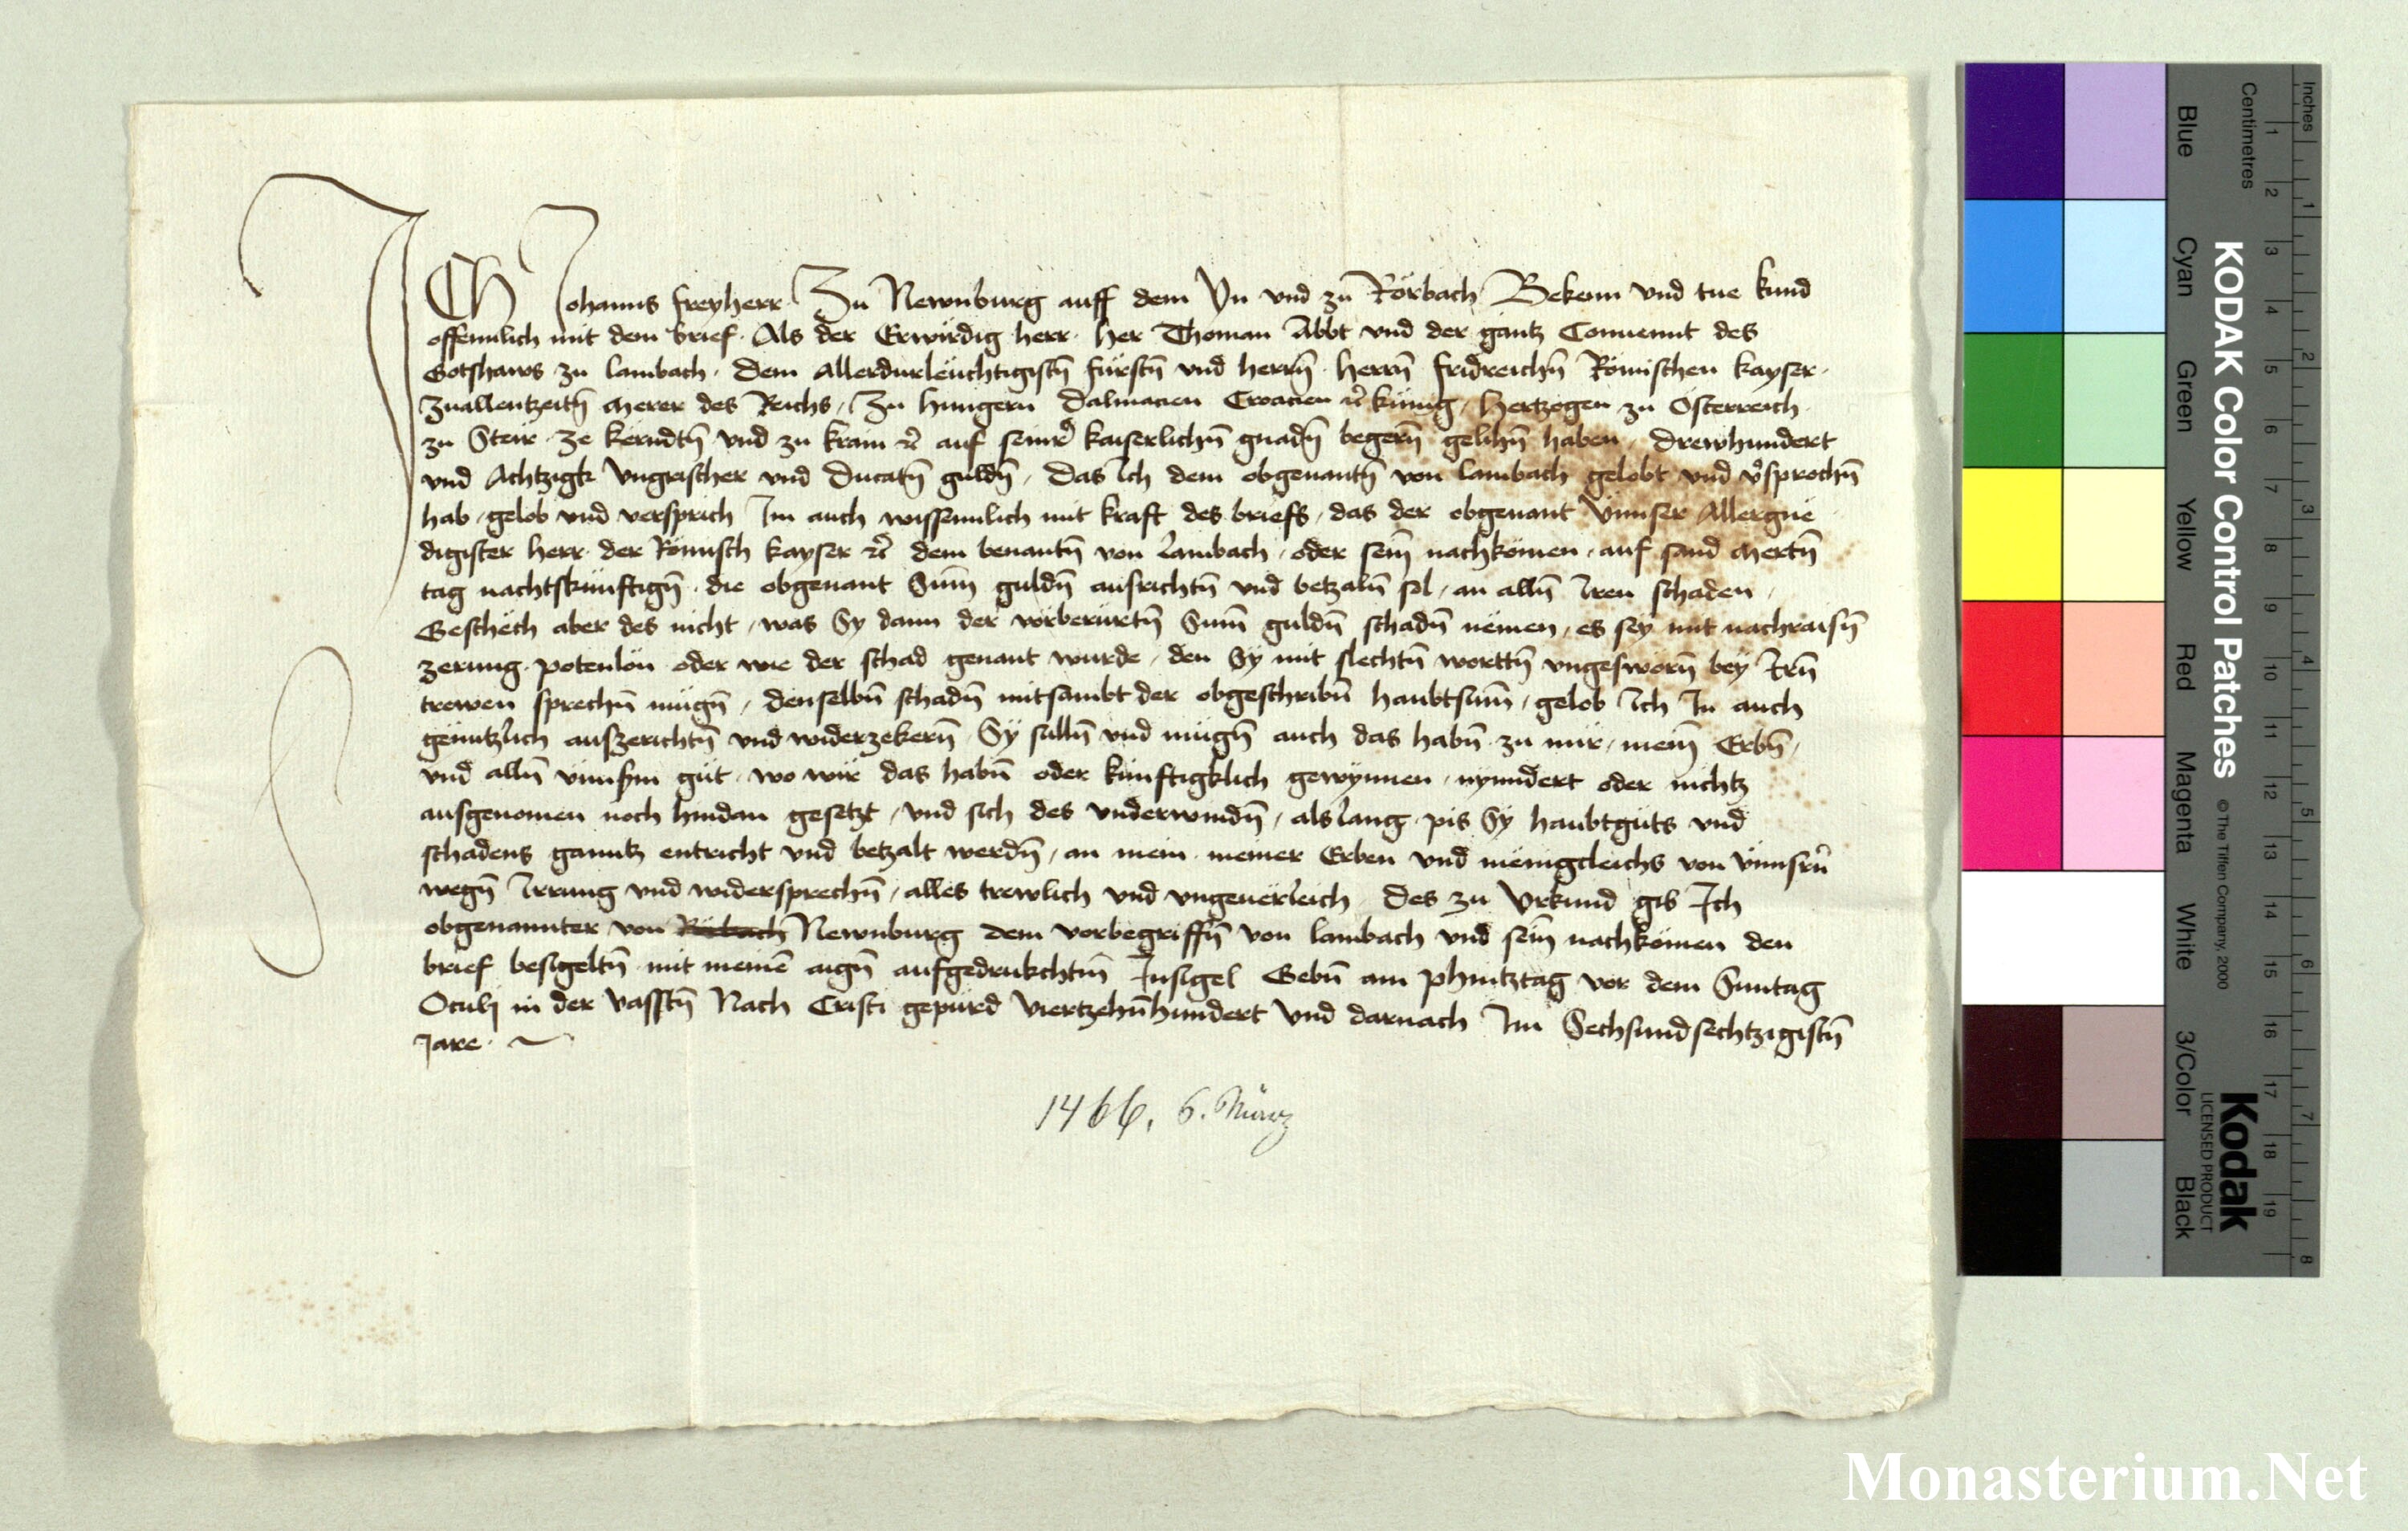 ICh Johanns freyherr Zu Newnburg auff dem Yn vnd zu Rorbach Bekenn vnd tue kund
offennlich mit dem brief. Als der Erwirdig herr her Thoman Abbt vnd der gantz Conuennt des
Gotshaws zu lambach. dem Allerdurleuchtigistn̄ fürstn̄ vnd herrn̄. herrn̄ fridreichn̄ Römischen kayser.
Zuallentzeitn̄ merer des Reichs, Zu hungern dalmacien Croacien rc̄ kunig, hertzogen zu Osterreich.
zu Steir ze kerndtn̄ vnd zu krain rc̄ auf seinr̄ kaiserlichn̄ gnadn̄ begern̄ gelihn̄ haben, drewhundert
vnd Achtzigk vngrischer vnd ducatn̄ guldn̄, das Ich dem obgenantn̄ von lambach gelobt vnd v̄sprochn̄
hab, gelob vnd versprich Im auch wissennlich mit kraft des briefs, das der obgenant vnnser Allergne
digister herr der Römisch kayser rc̄ dem benantn̄ von lambach, oder sein̄ nachkömen, auf sand mertn̄
tag nachtskunftign̄. die obgenant Sum̄ guldn̄ ausrichtn̄ vnd betzaln̄ sol, an alln̄ Iren schaden,
Geschech aber des nicht, was Sy dann der vorberurtn̄ Sum̄ guldn̄ schadn̄ nemen, es sey mit nachraisn̄
zerung. potenlon oder wie der schad genant wurde, den Sy mit slechtn̄ worttn̄ vngesworn̄ bey Irn̄
trewen sprechn̄ mugn̄, denselbn̄ schadn̄ mitsambt der obgeschribn̄ haubtsum̄, gelob Ich In auch
genntzlich auszerichtn̄ vnd widerzekern̄ Sy sulln̄ vnd mugn̄ auch das habn̄ zu mir, mein̄ Erbn̄,
vnd alln̄ vnnsrm gut. wo wir das habn̄ oder kunftigklich gewynnen, nynndert oder nichtz
ausgenomen noch hindan gesetzt, vnd sich des vnderwindn̄, alslang. pis Sy haubtguts vnd
schadens ganntz entricht vnd betzalt werdn̄, an mein. meiner Erben vnd menigcleichs von vnnsrn̄
wegn̄ Irrung vnd widersprechn̄, alles trewlich vnd vngeuerleich. des zu vrkund gib Ich
obgenannter von Rorbach Newnburg dem vorbegriffn̄ von lambach vnd sein̄ nachkömen den
brief besigeltn̄ mit meinē aign̄ aufgedrukchtm̄ Insigel Gebn̄ am phintztag vor dem Suntag
Oculj in der vasstn̄ Nach Cristi gepurd viertzehn̄hundert vnd darnach Im Sechsundsechtzigistn̄
Jare.
1466, 6. März
KODAK Color Control Patches
© The Tiffen Company, 2000
Kodak
LICENSED PRODUCT
Inches
1 2 3 4 5 6 7 8
Centimetres
1 2 3 4 5 6 7 8 9 10 11 12 13 14 15 16 17 18 19
Blue
Cyan
Green
Yellow
Red
Magenta
White
3/Color
Black
Monasterium.Net